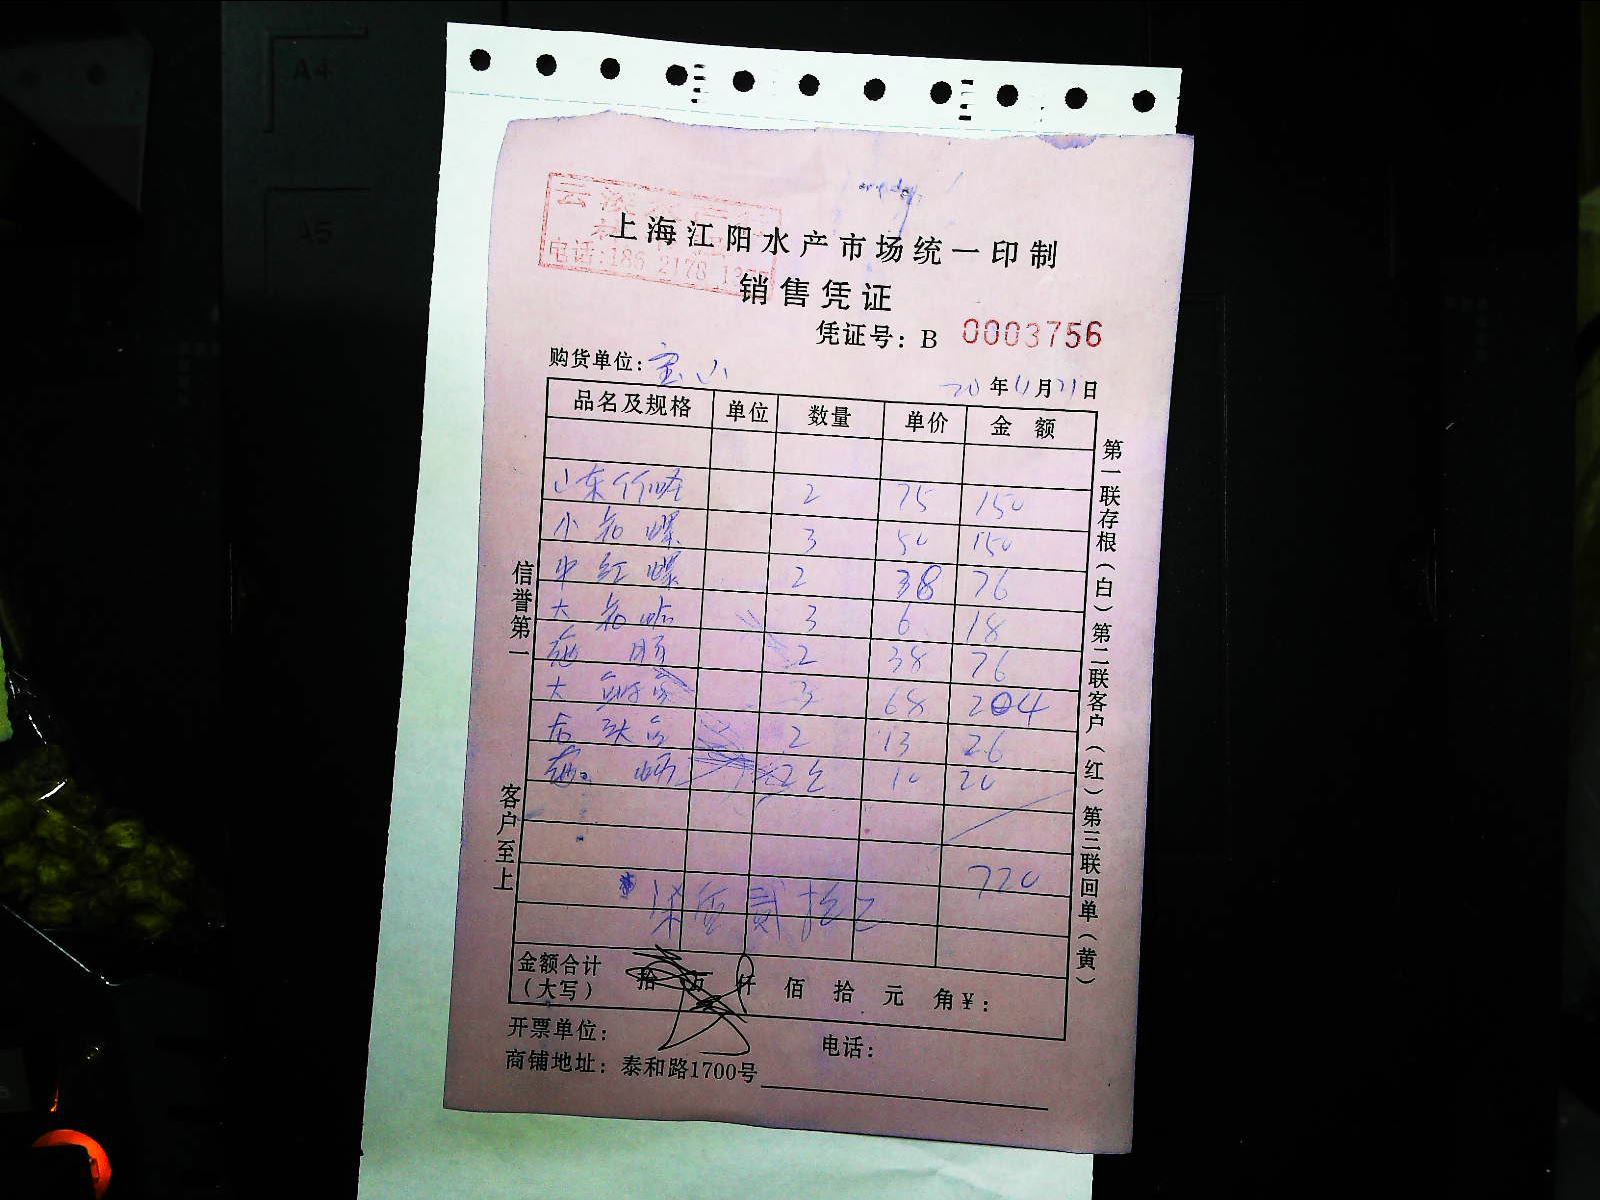 A4
A5
电话:186 2178
上海江阳水产市场统一印制
销售凭证
凭证号: B 0003756
购货单位: 宝山
20年11月21日
品名及规格 单位 数量 单价 金额
山东竹蛏 2 75 150
小 螺 3 50 150
中红螺 2 38 76
大 3 6 18
2 38 76
大 3 68 204
2 13 26
2 10 20
720
柒佰贰拾
金额合计(大写) 拾 万 仟 佰 拾 元 角 ¥:
开票单位: 电话:
商铺地址: 泰和路1700号
信誉第一
客户至上
第一联存根(白)第二联客户(红)第三联回单(黄)